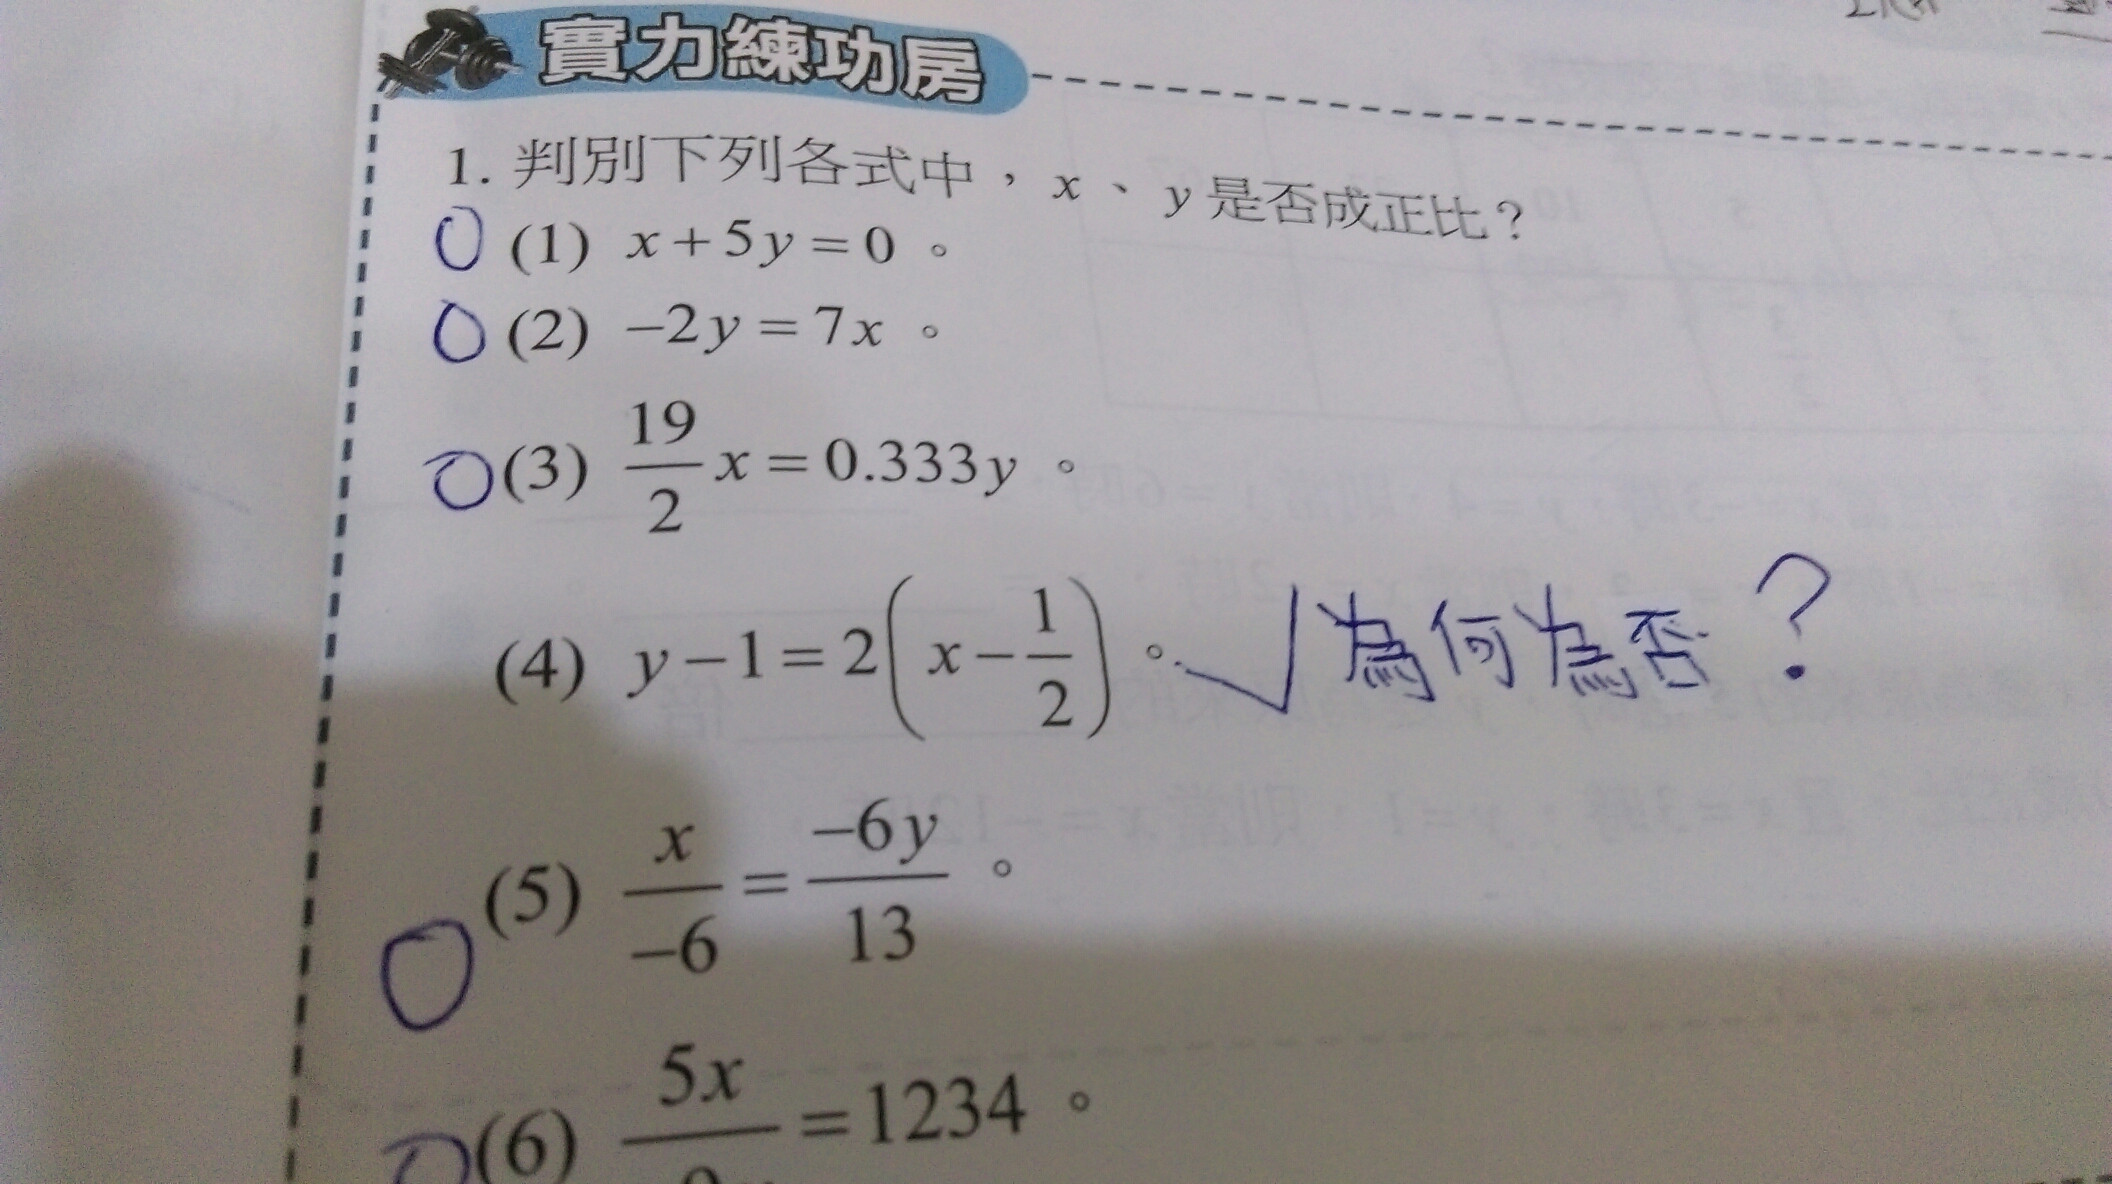 實力練功房
1. 判別下列各式中，x、y是否成正比？
(1) x+5y=0。
(2) −2y=7x。
(3) 19/2 x=0.333y。
(4) y−1=2(x−1/2)。✓為何為否？
(5) x/−6=−6y/13。
(6) 5x
=1234。